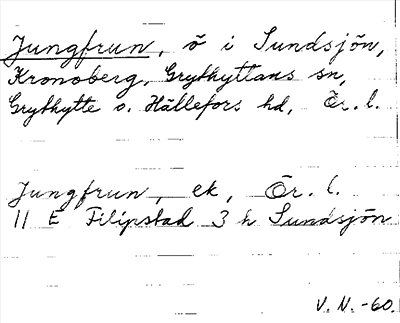 Jungfrun, ö i Sundsjön,
Kronoberg, Grythyttans sn,
Grythytte o. Hällefors hd, Ör. l.
Jungfrun, ek, Ör. l.
11 E Filipstad 3 h Sundsjön
V. N. -60.